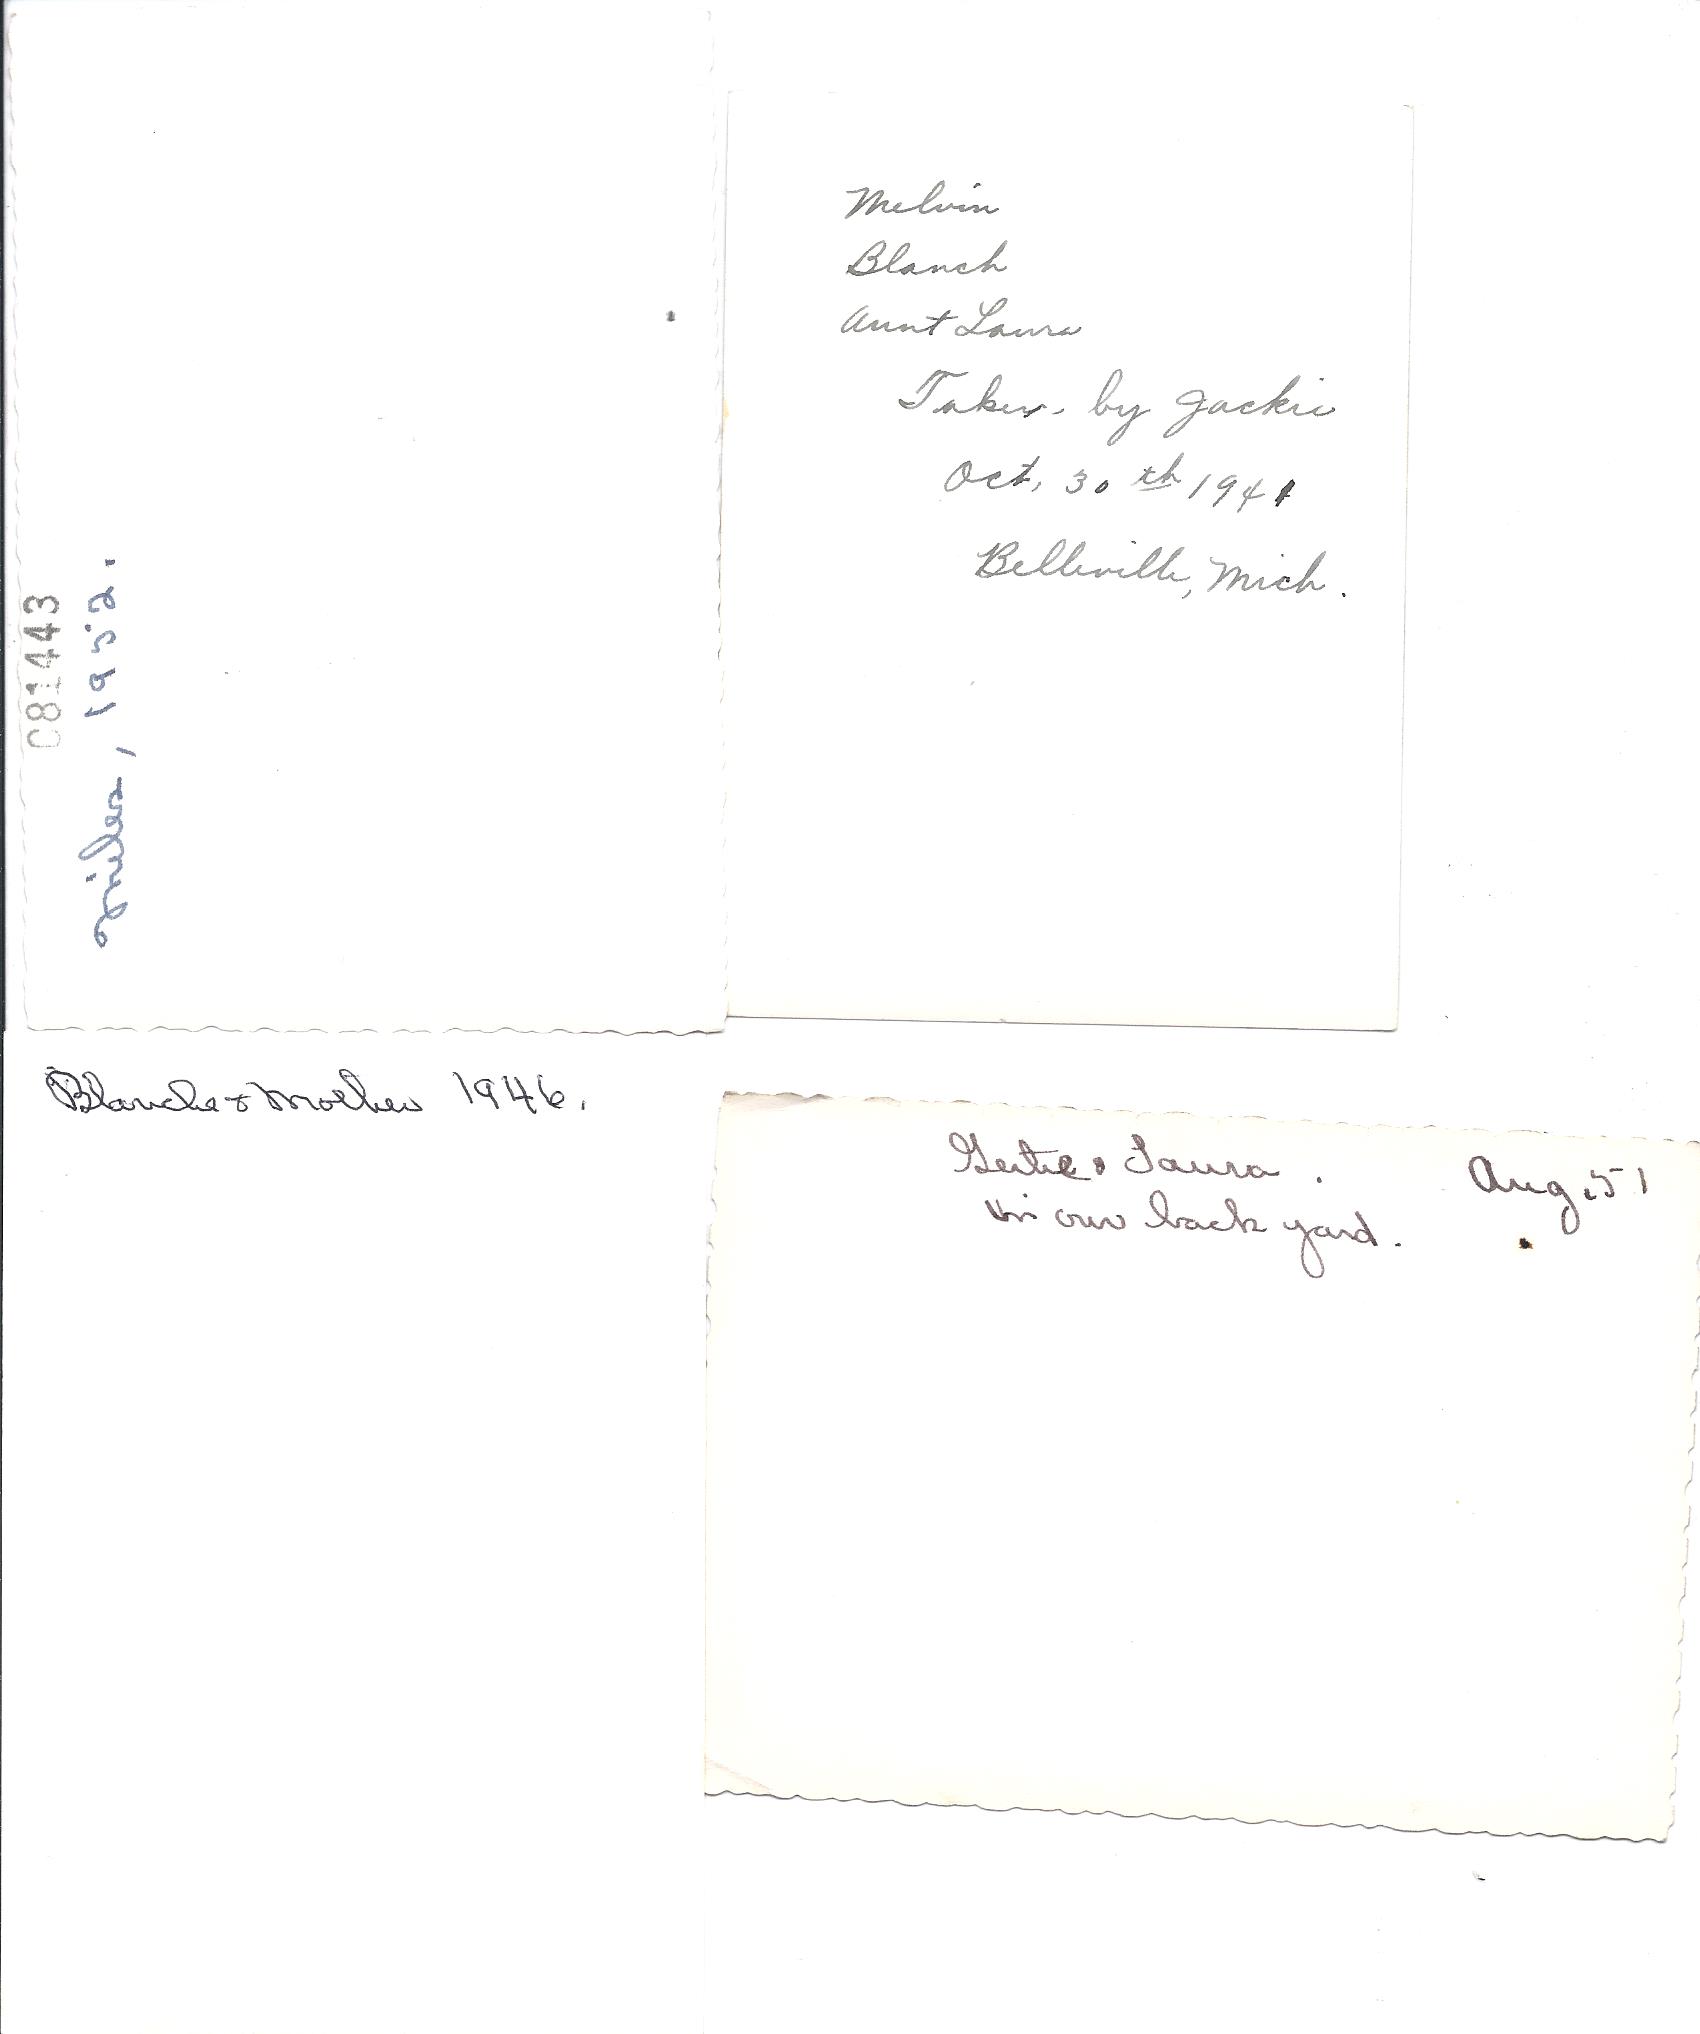 C81443
Miles, 1952.
Melvin
Blanch
Aunt Laura
Taken. by Jackie
Oct, 30 th 1941
Belleville, Mich.
Blanche & Mother 1946.
Gertie & Laura. Aug. 51
in our back yard.